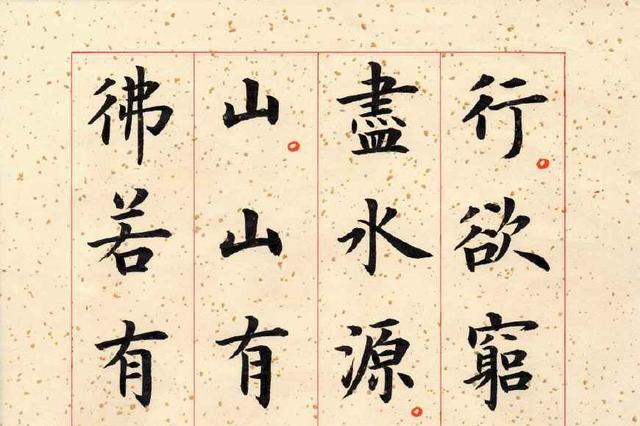 行欲窮
盡水源
山山有
彿若有